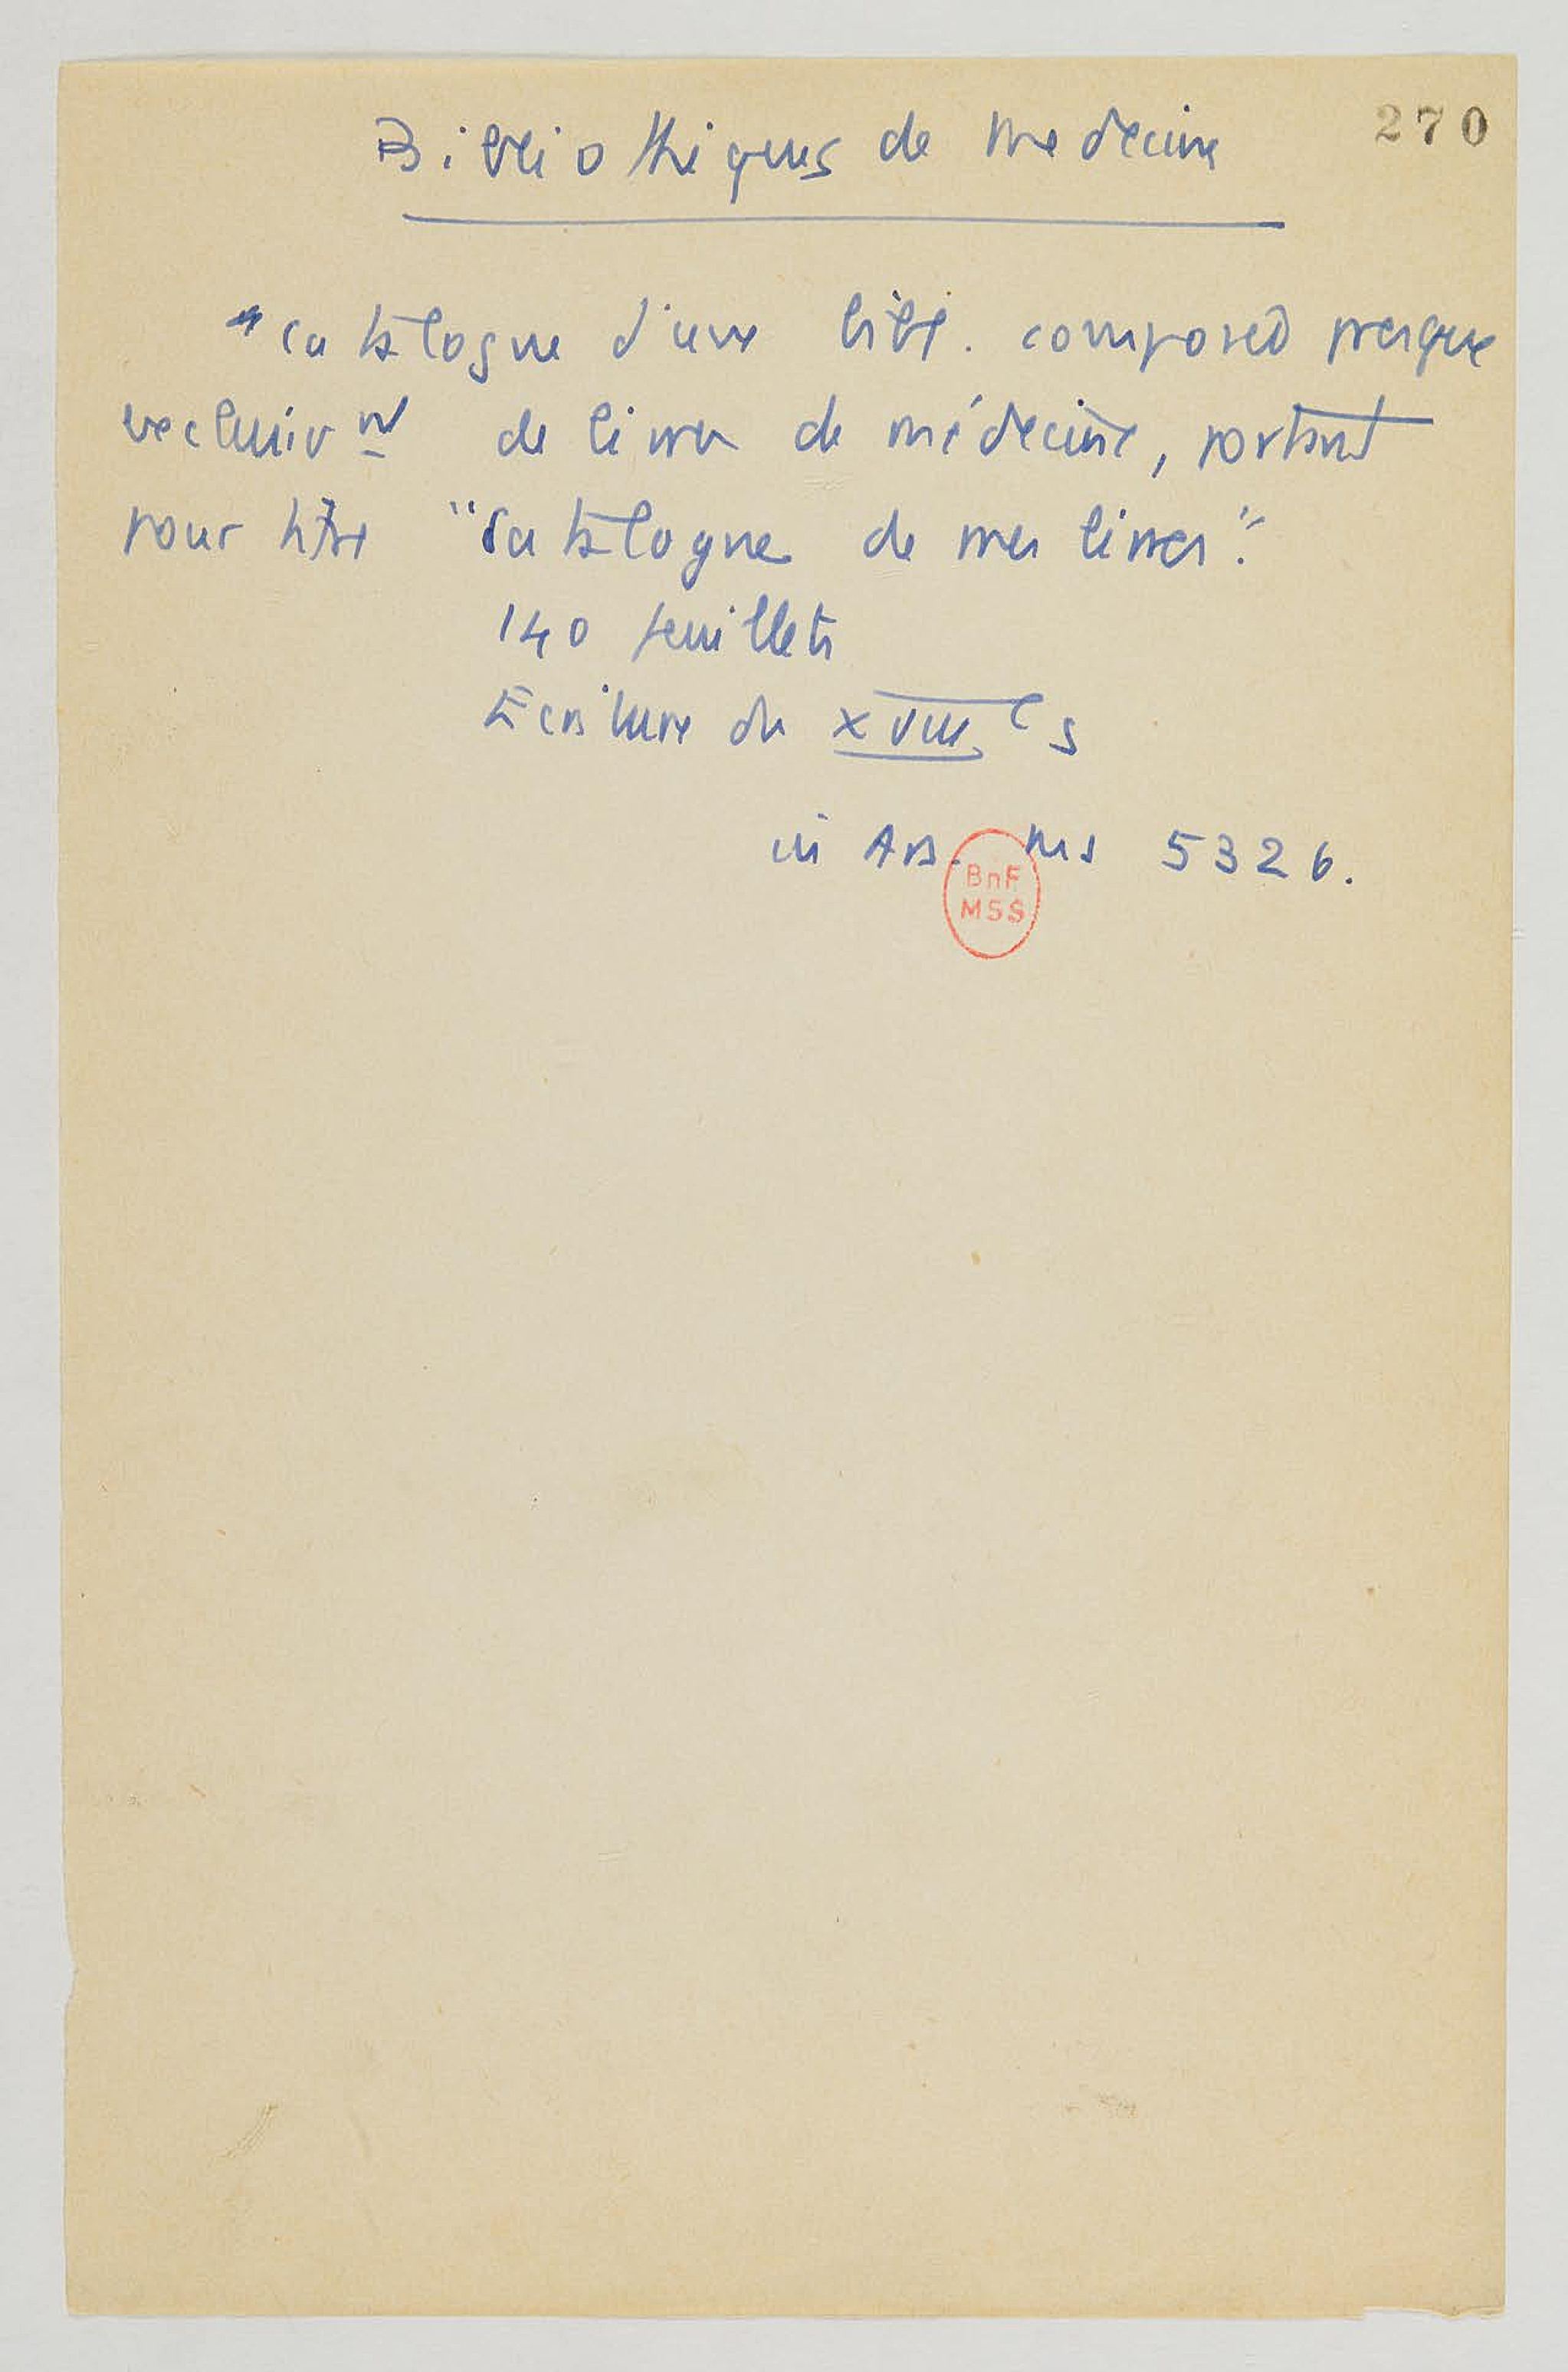 270
Bibliothèques de Medecine
"catalogue d'une bibl. composed presque
exclusivnt de livres de médecine, portant
pour titre "Catalogue de mes livres".
140 feuillets
Ecriture du XVIIIe s
in Ars. Ms 5326.
BnF
MSS